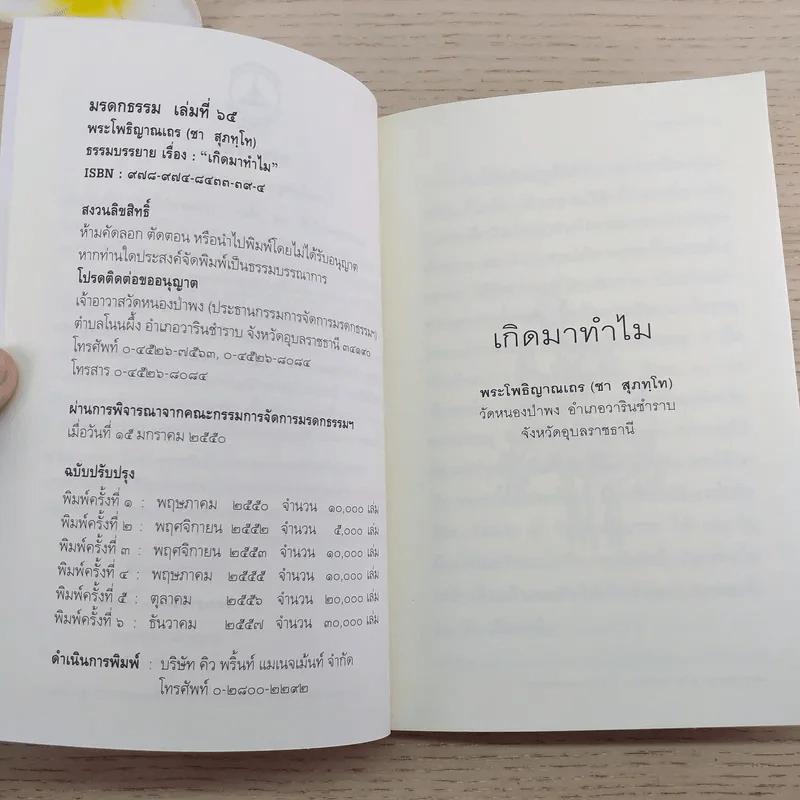 มรดกธรรม เล่มที่ ๖๕
พระโพธิญาณเถร (ชา สุภทฺโท)
ธรรมบรรยาย เรื่อง : “เกิดมาทำไม”
ISBN : ๙๗๘-๙๗๔-๘๔๓๓-๓๙-๔
สงวนลิขสิทธิ์
ห้ามคัดลอก ตัดตอน หรือนำไปพิมพ์โดยไม่ได้รับอนุญาต
หากท่านใดประสงค์จัดพิมพ์เป็นธรรมบรรณาการ
โปรดติดต่อขออนุญาต
เจ้าอาวาสวัดหนองป่าพง (ประธานกรรมการจัดการมรดกธรรมฯ)
ตำบลโนนผึ้ง อำเภอวารินชำราบ จังหวัดอุบลราชธานี ๓๔๑๙๐
โทรศัพท์ ๐-๔๕๒๖-๗๕๖๓, ๐-๔๕๒๖-๘๐๘๔
โทรสาร ๐-๔๕๒๖-๘๐๘๔
ผ่านการพิจารณาจากคณะกรรมการจัดการมรดกธรรมฯ
เมื่อวันที่ ๑๕ มกราคม ๒๕๕๐
ฉบับปรับปรุง
พิมพ์ครั้งที่ ๑ : พฤษภาคม ๒๕๕๐ จำนวน ๑๐,๐๐๐ เล่ม
พิมพ์ครั้งที่ ๒ : พฤศจิกายน ๒๕๕๒ จำนวน ๕,๐๐๐ เล่ม
พิมพ์ครั้งที่ ๓ : พฤศจิกายน ๒๕๕๓ จำนวน ๑๐,๐๐๐ เล่ม
พิมพ์ครั้งที่ ๔ : พฤษภาคม ๒๕๕๕ จำนวน ๑๐,๐๐๐ เล่ม
พิมพ์ครั้งที่ ๕ : ตุลาคม ๒๕๕๖ จำนวน ๒๐,๐๐๐ เล่ม
พิมพ์ครั้งที่ ๖ : ธันวาคม ๒๕๕๗ จำนวน ๓๐,๐๐๐ เล่ม
ดำเนินการพิมพ์ : บริษัท คิว พริ้นท์ แมเนจเม้นท์ จำกัด
โทรศัพท์ ๐-๒๘๐๐-๒๒๙๒
เกิดมาทำไม
พระโพธิญาณเถร (ชา สุภทฺโท)
วัดหนองป่าพง อำเภอวารินชำราบ
จังหวัดอุบลราชธานี